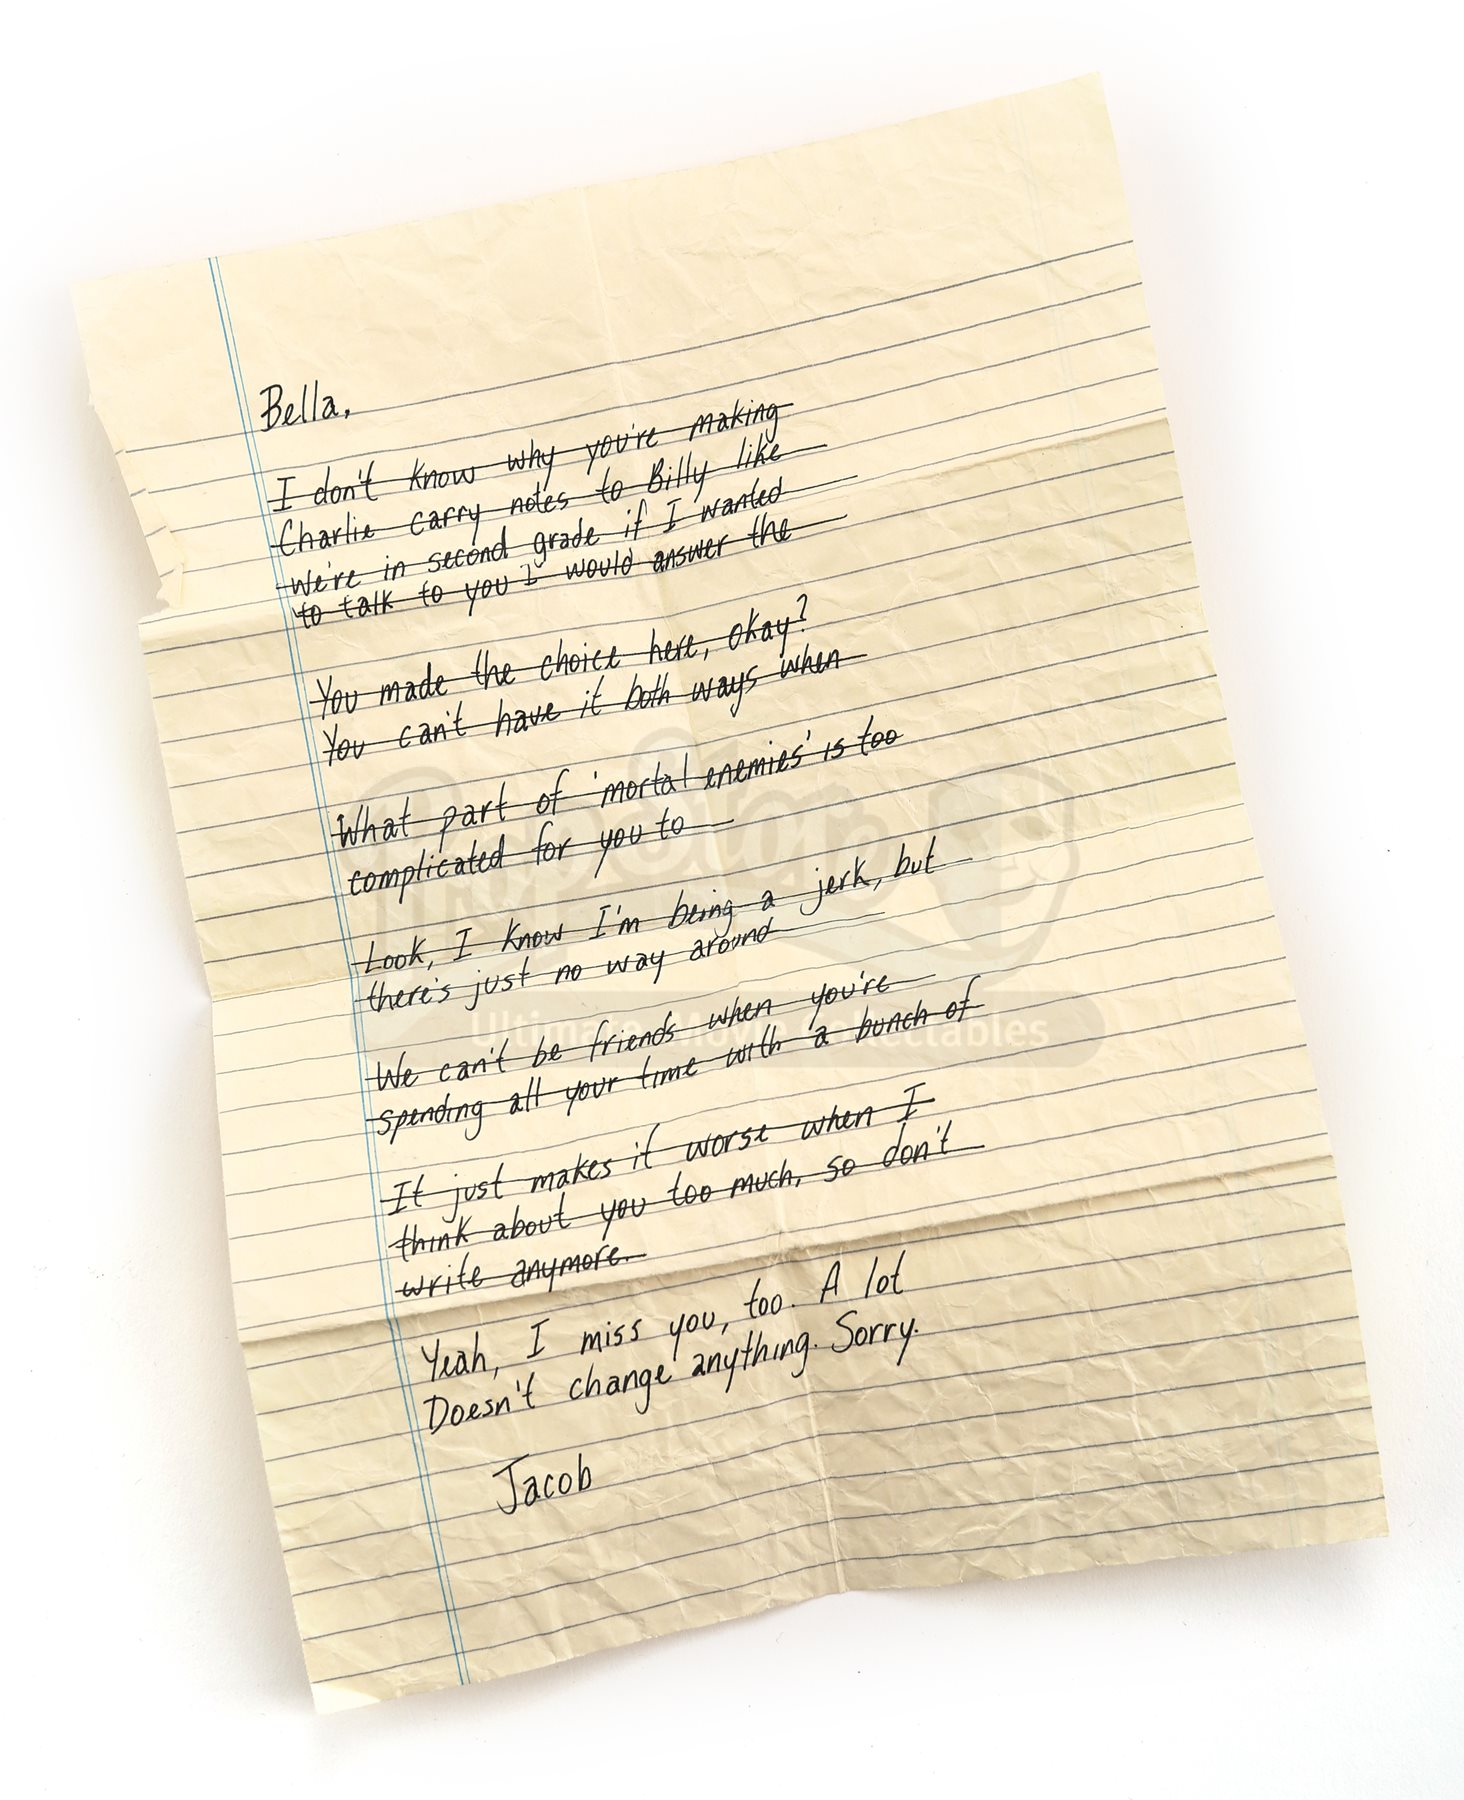 Bella,
I don't know why you're making
Charlie carry notes to Billy like
we're in second grade if I wanted
to talk to you I would answer the
You made the choice here, okay?
You can't have it both ways when
What part of 'mortal enemies' is too
complicated for you to
Look, I know I'm being a jerk, but
there's just no way around
We can't be friends when you're
spending all your time with a bunch of
It just makes it worse when I
think about you too much, so don't
write anymore.
Yeah, I miss you, too. A lot
Doesn't change anything. Sorry.
Jacob
PropStore
Ultimate Movie Collectables